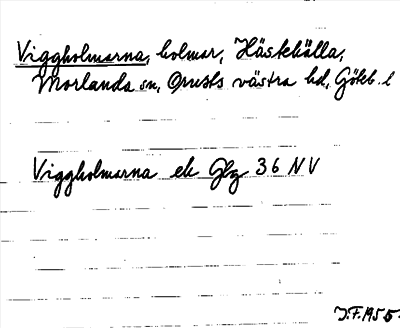 Viggholmarna, holmar, Hästekälla,
Morlanda sn, Orusts västra hd, Göteb. l
Viggholmarna ek Gbg 36 NV
J.F. 1955.